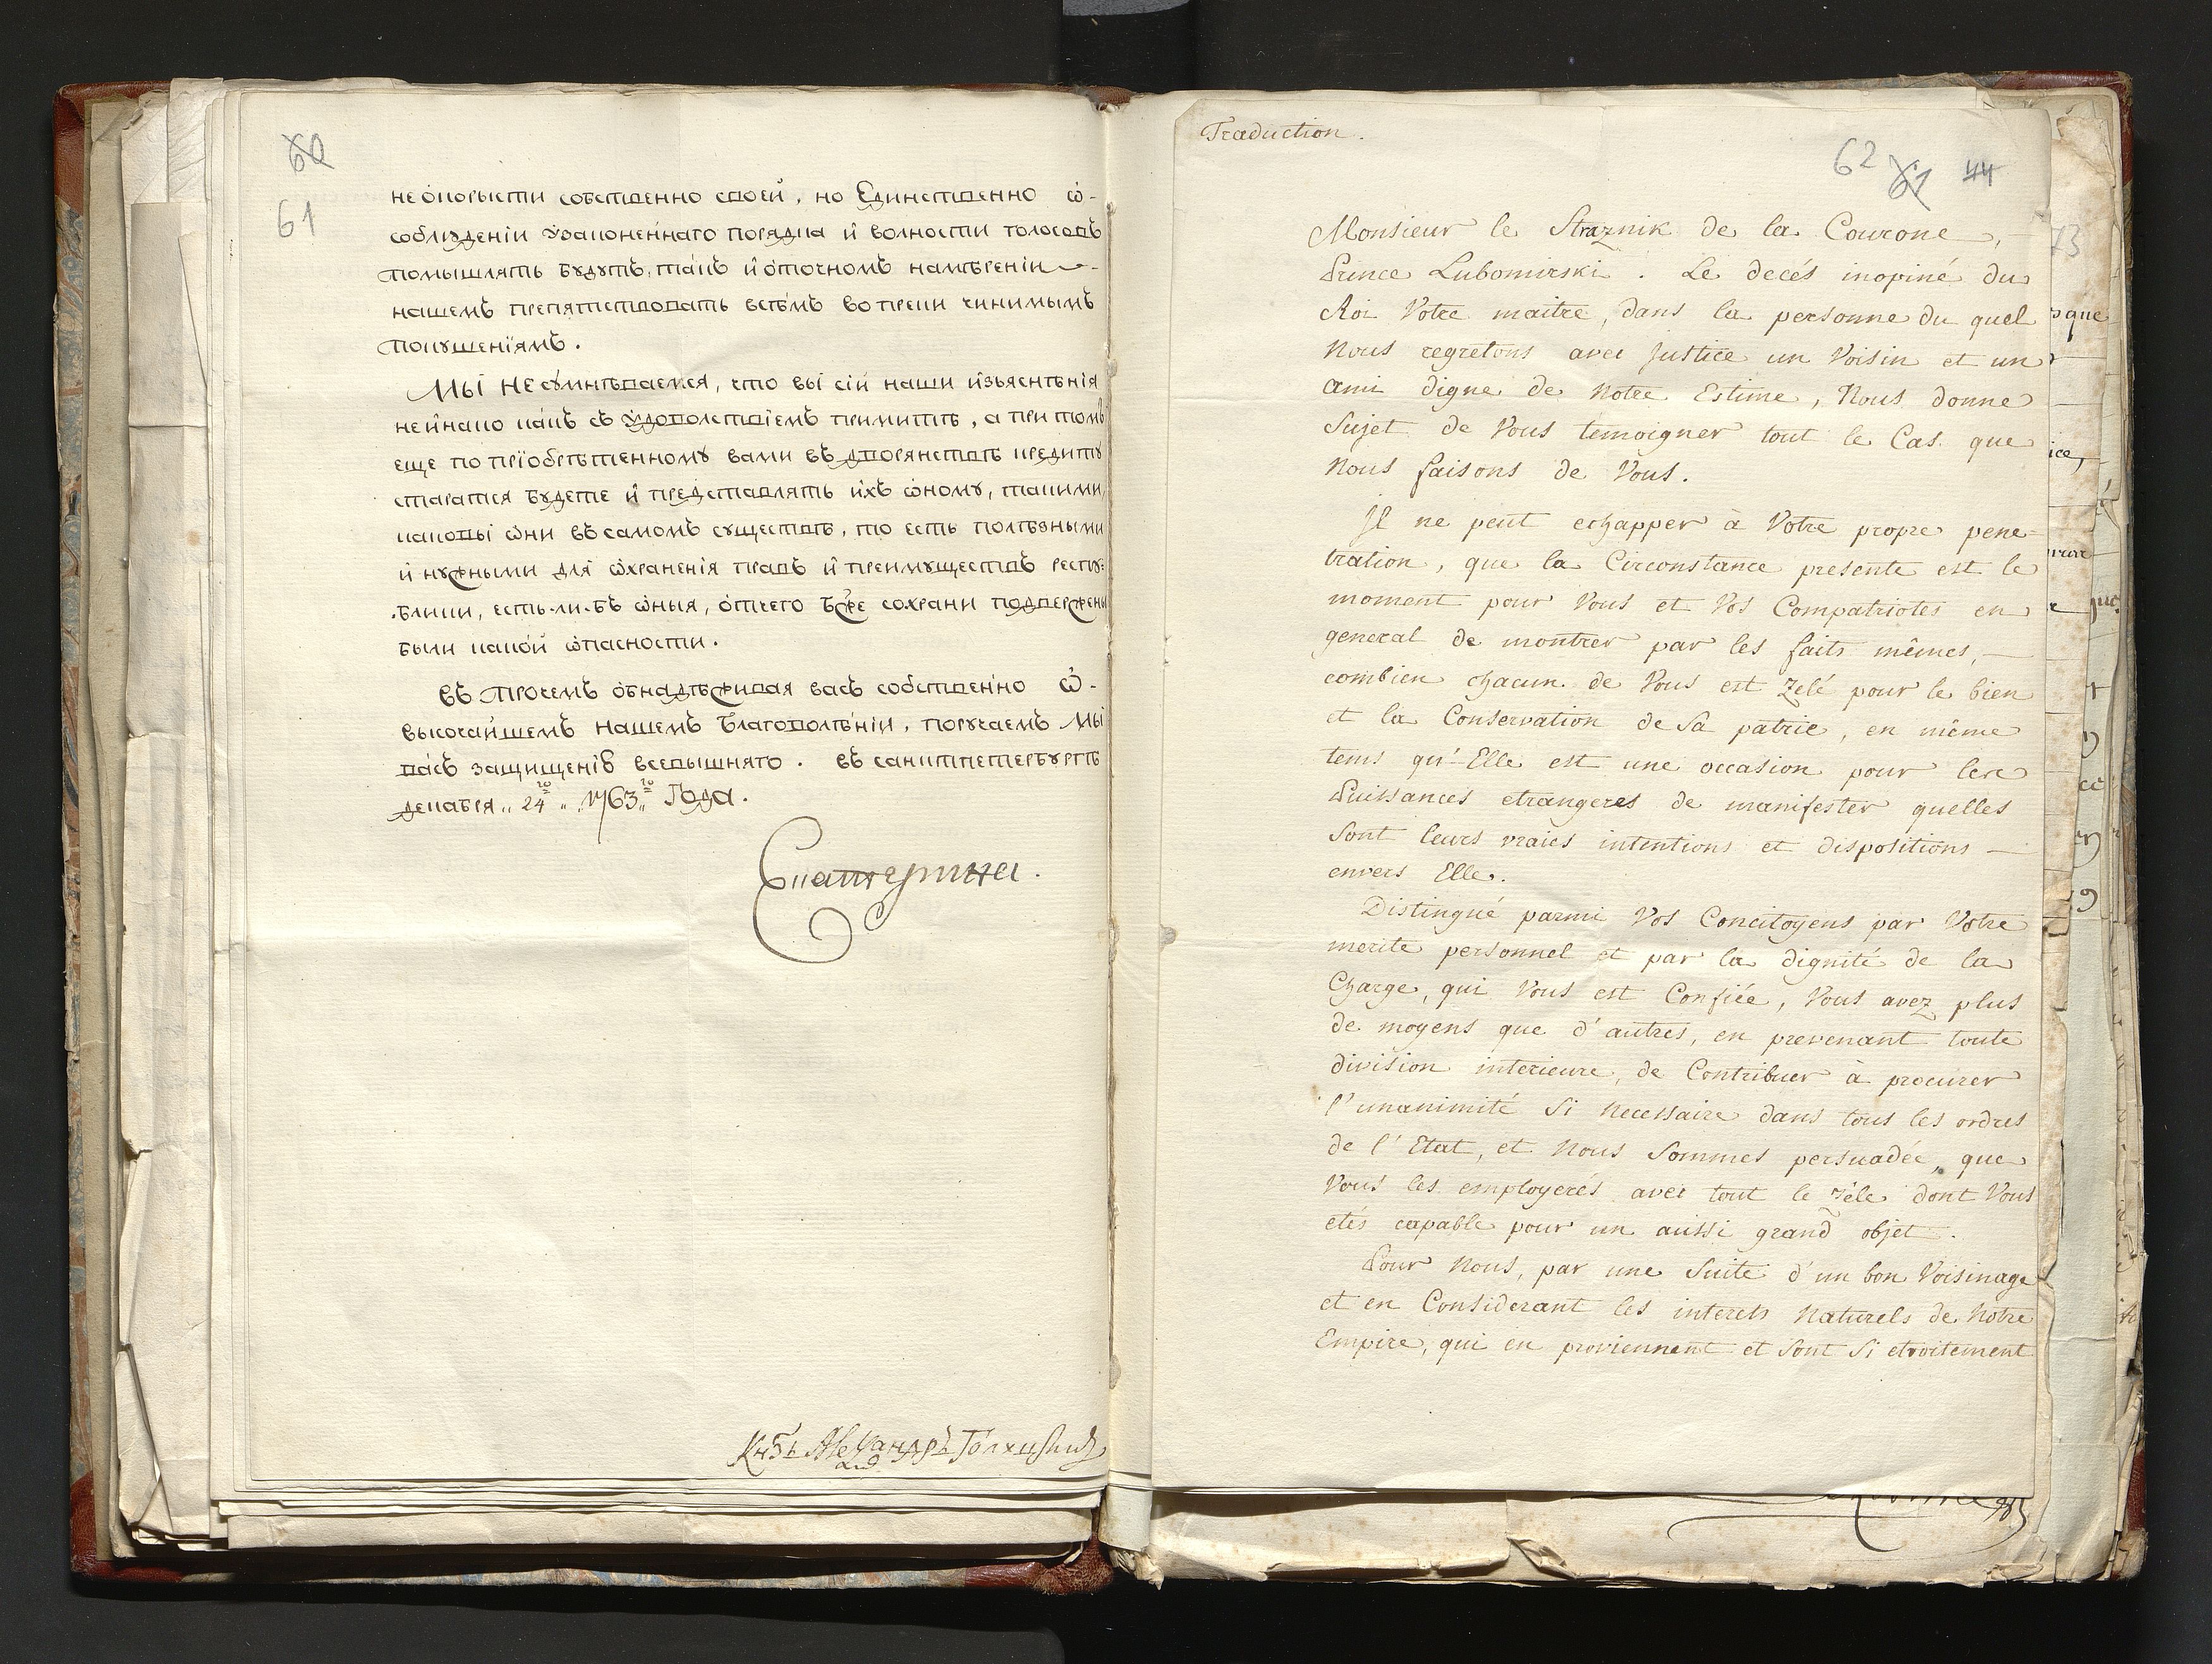 60
61
не ѡкорысти собственно своей, но Единственно ѡ-
соблюденіи Узаконеннаго порядка и волности голосовъ
помышлять будутъ, такъ и ѡточномъ намѣреніи
нашемъ препятствовать всѣмъ вопреки чинимымъ
покушеніямъ.
Мы не сумнѣваемся, что вы сіи наши изъясненія
не инако какъ съ удоволствіемъ примите, а при томъ
еще по пріобрѣтенному вами въ дворянствѣ кредиту
старатся будете и представлять ихъ ѡному, такими,
каковы ѡни въ самомъ существѣ, то есть полѣзными
и нужными для ѡхраненія правъ и преимуществъ респу-
блики, есть-ли-бъ ѡныя, отчего Бже сохрани подвержены
были какой ѡпасности.
Въ протчемъ обнадѣживая васъ собственно ѡ-
высочайшемъ нашемъ благоволѣніи, поручаемъ Мы
васъ защищенію всевышняго. въ санктпетербургѣ
декабря „24го„ 1763„го Года.
Екатерина.
Кнзь Александръ Голицынъ
Traduction.
62 61 44
Monsieur le Straznik de la Courone,
Prince Lubomirski. Le decés inopiné du
Roi Votre maitre, dans la personne du quel
Nous regretons avec justice un Voisin et un
ami digne de Notre Estime, Nous donne
Sujet de Vous temoigner tout le Cas que
Nous faisons de Vous.
Il ne peut echapper à Votre propre pene-
tration, que la Circonstance presente est le
moment pour Vous et Vos Compatriotes en
general de montrer par les faits mêmes,
combien chacun de Vous est Zelé pour le bien
et la Conservation de Sa patrie, en même
tems qu'Elle est une occasion pour les
Puissances etrangeres de manifester quelles
Sont leurs vraies intentions et dispositions
envers Elle.
Distingué parmi Vos Concitoyens par Votre
merite personnel et par la dignité de la
Charge, qui Vous est Confiée, Vous avez plus
de moyens que d'autres, en prevenant toute
division interieure, de Contribuer à procurer
l'unanimité Si necessaire dans tous les ordres
de l'Etat, et Nous Sommes persuadée, que
Vous les employerés avec tout le zéle dont Vous
etés capable pour un aussi grand objet.
Pour Nous, par une Suite d'un bon Voisinage
et en Considerant les interets Naturels de Notre
Empire, qui en proviennent et Sont Si etroitement